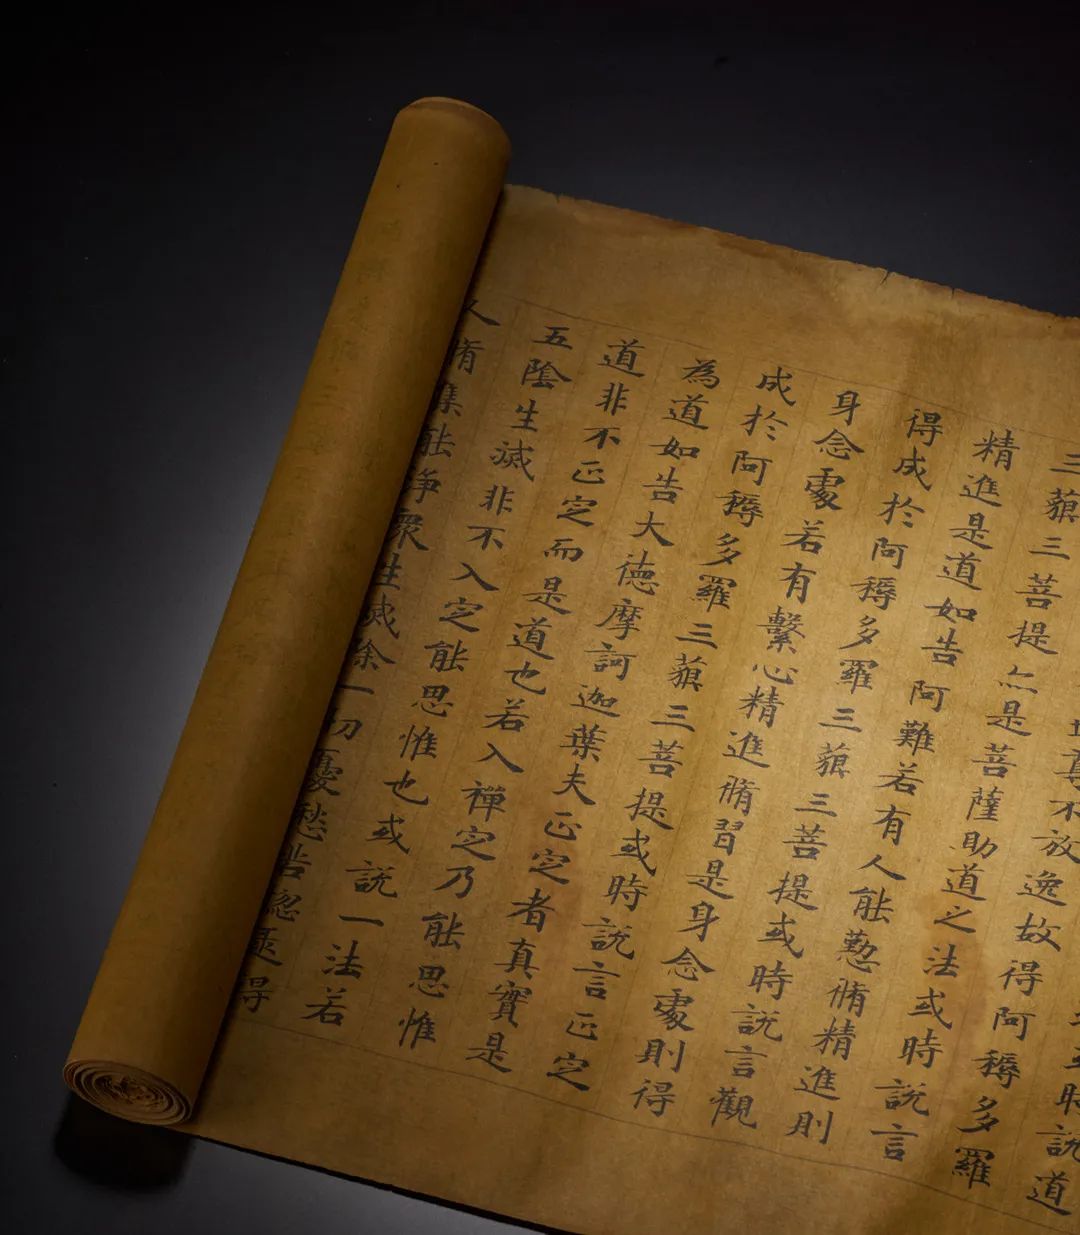 三或時説道
世尊不放逸故得阿耨多羅
三藐三菩提亦是菩薩助道之法或時説言
精進是道如告阿難若有人能懃脩精進則
得成於阿耨多羅三藐三菩提或時説言觀
身念處若有繫心精進脩習是身念處則得
成於阿耨多羅三藐三菩提或時説言正定
為道如告大德摩訶迦葉夫正定者真實是
道非不正定而是道也若入禪定乃能思惟
五陰生滅非不入定能思惟也或説一法若
人脩集能淨衆生滅除一切憂愁苦惱逮得